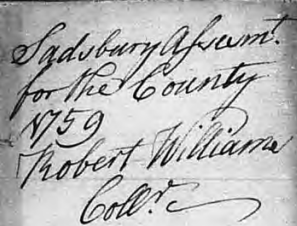 Sadsbury Assesmt.
for the County
1759
Robert Williams
Collr.